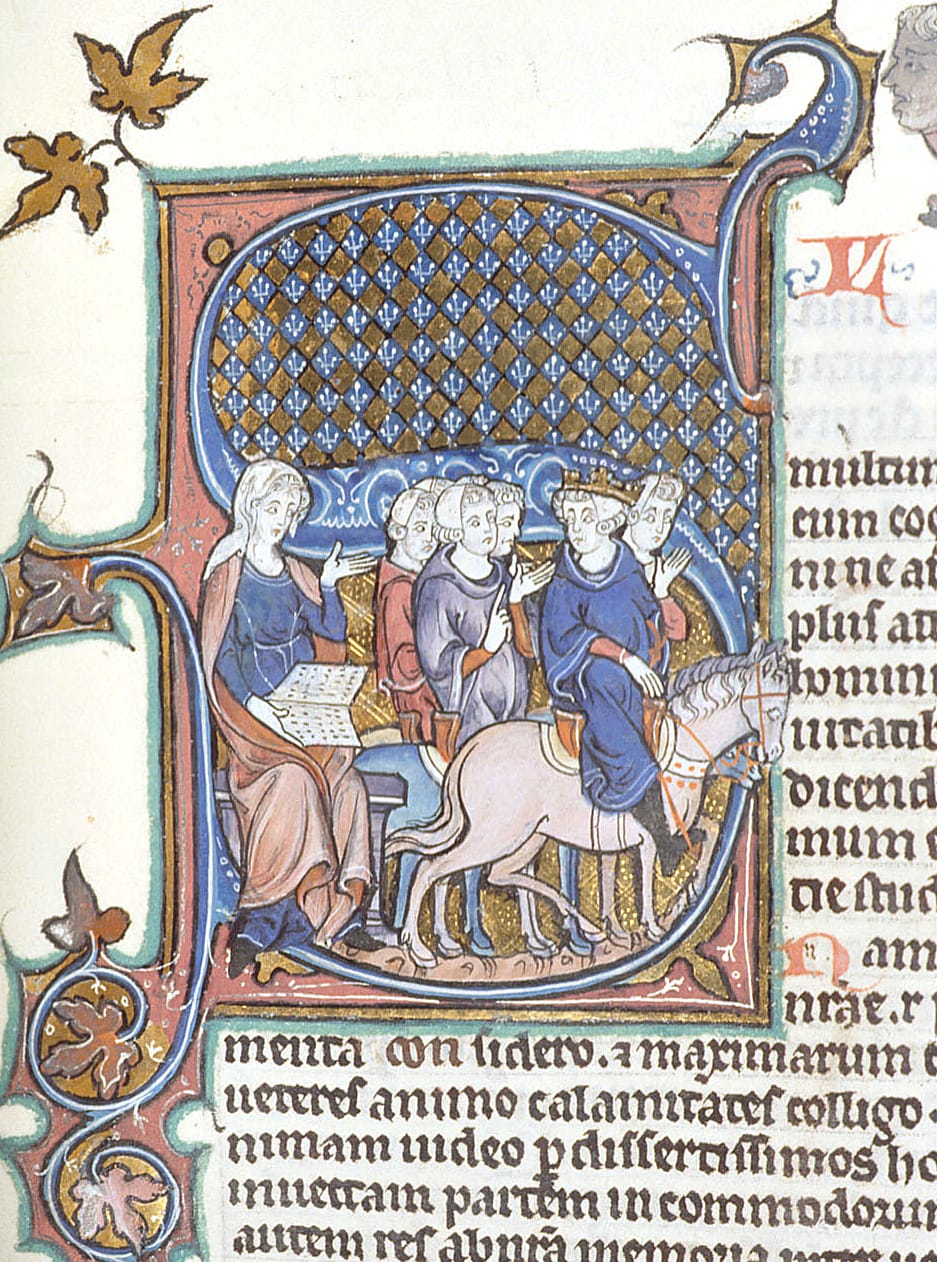 S
multum
cum co
nine a
plus att
homini
uitatib
dicend
mum e
tie stud
Nam
nrāe. r p
menta con sidero. ⁊ maximarum
ueteres animo calamitates colligo
nimam uideo ꝑ dissertissimos ho
inuectam partem in commodorum
autem res ab nr̄a memoria